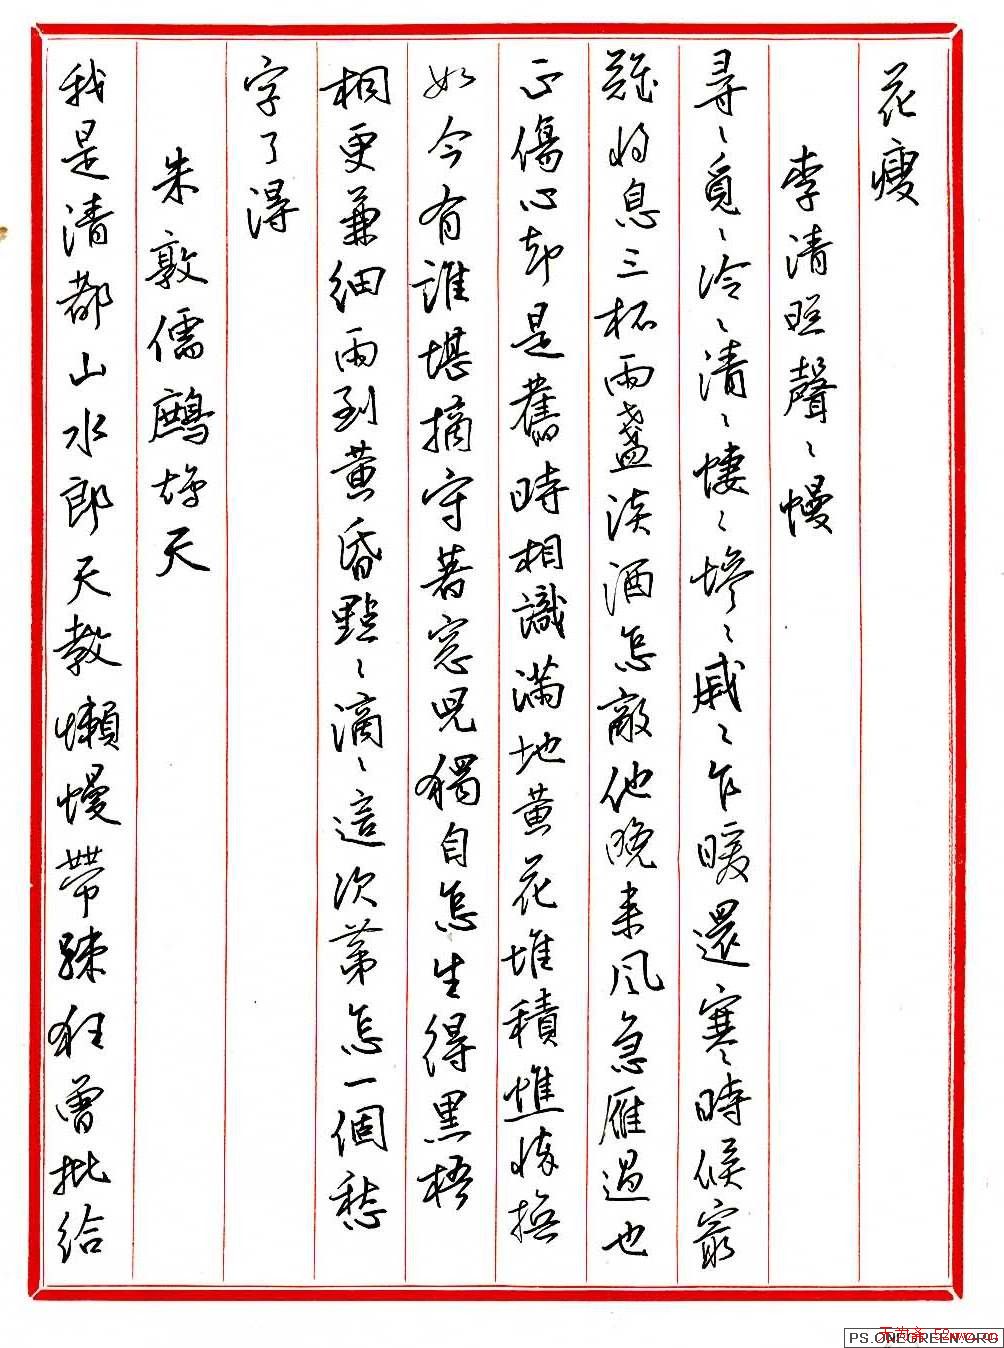 花瘦
李清照聲〻慢
尋〻覓〻冷〻清〻悽〻慘〻戚〻乍暖還寒時候最
難將息三杯兩盞淡酒怎敵他晚來風急雁過也
正傷心却是舊時相識滿地黃花堆積憔悴損
如今有誰堪摘守著窗兒獨自怎生得黑梧
桐更兼細雨到黃昏點〻滴〻這次第怎一個愁
字了得
朱敦儒鷓鴣天
我是清都山水郎天教懶慢帶疎狂曾批給
PS.ONEGREEN.ORG